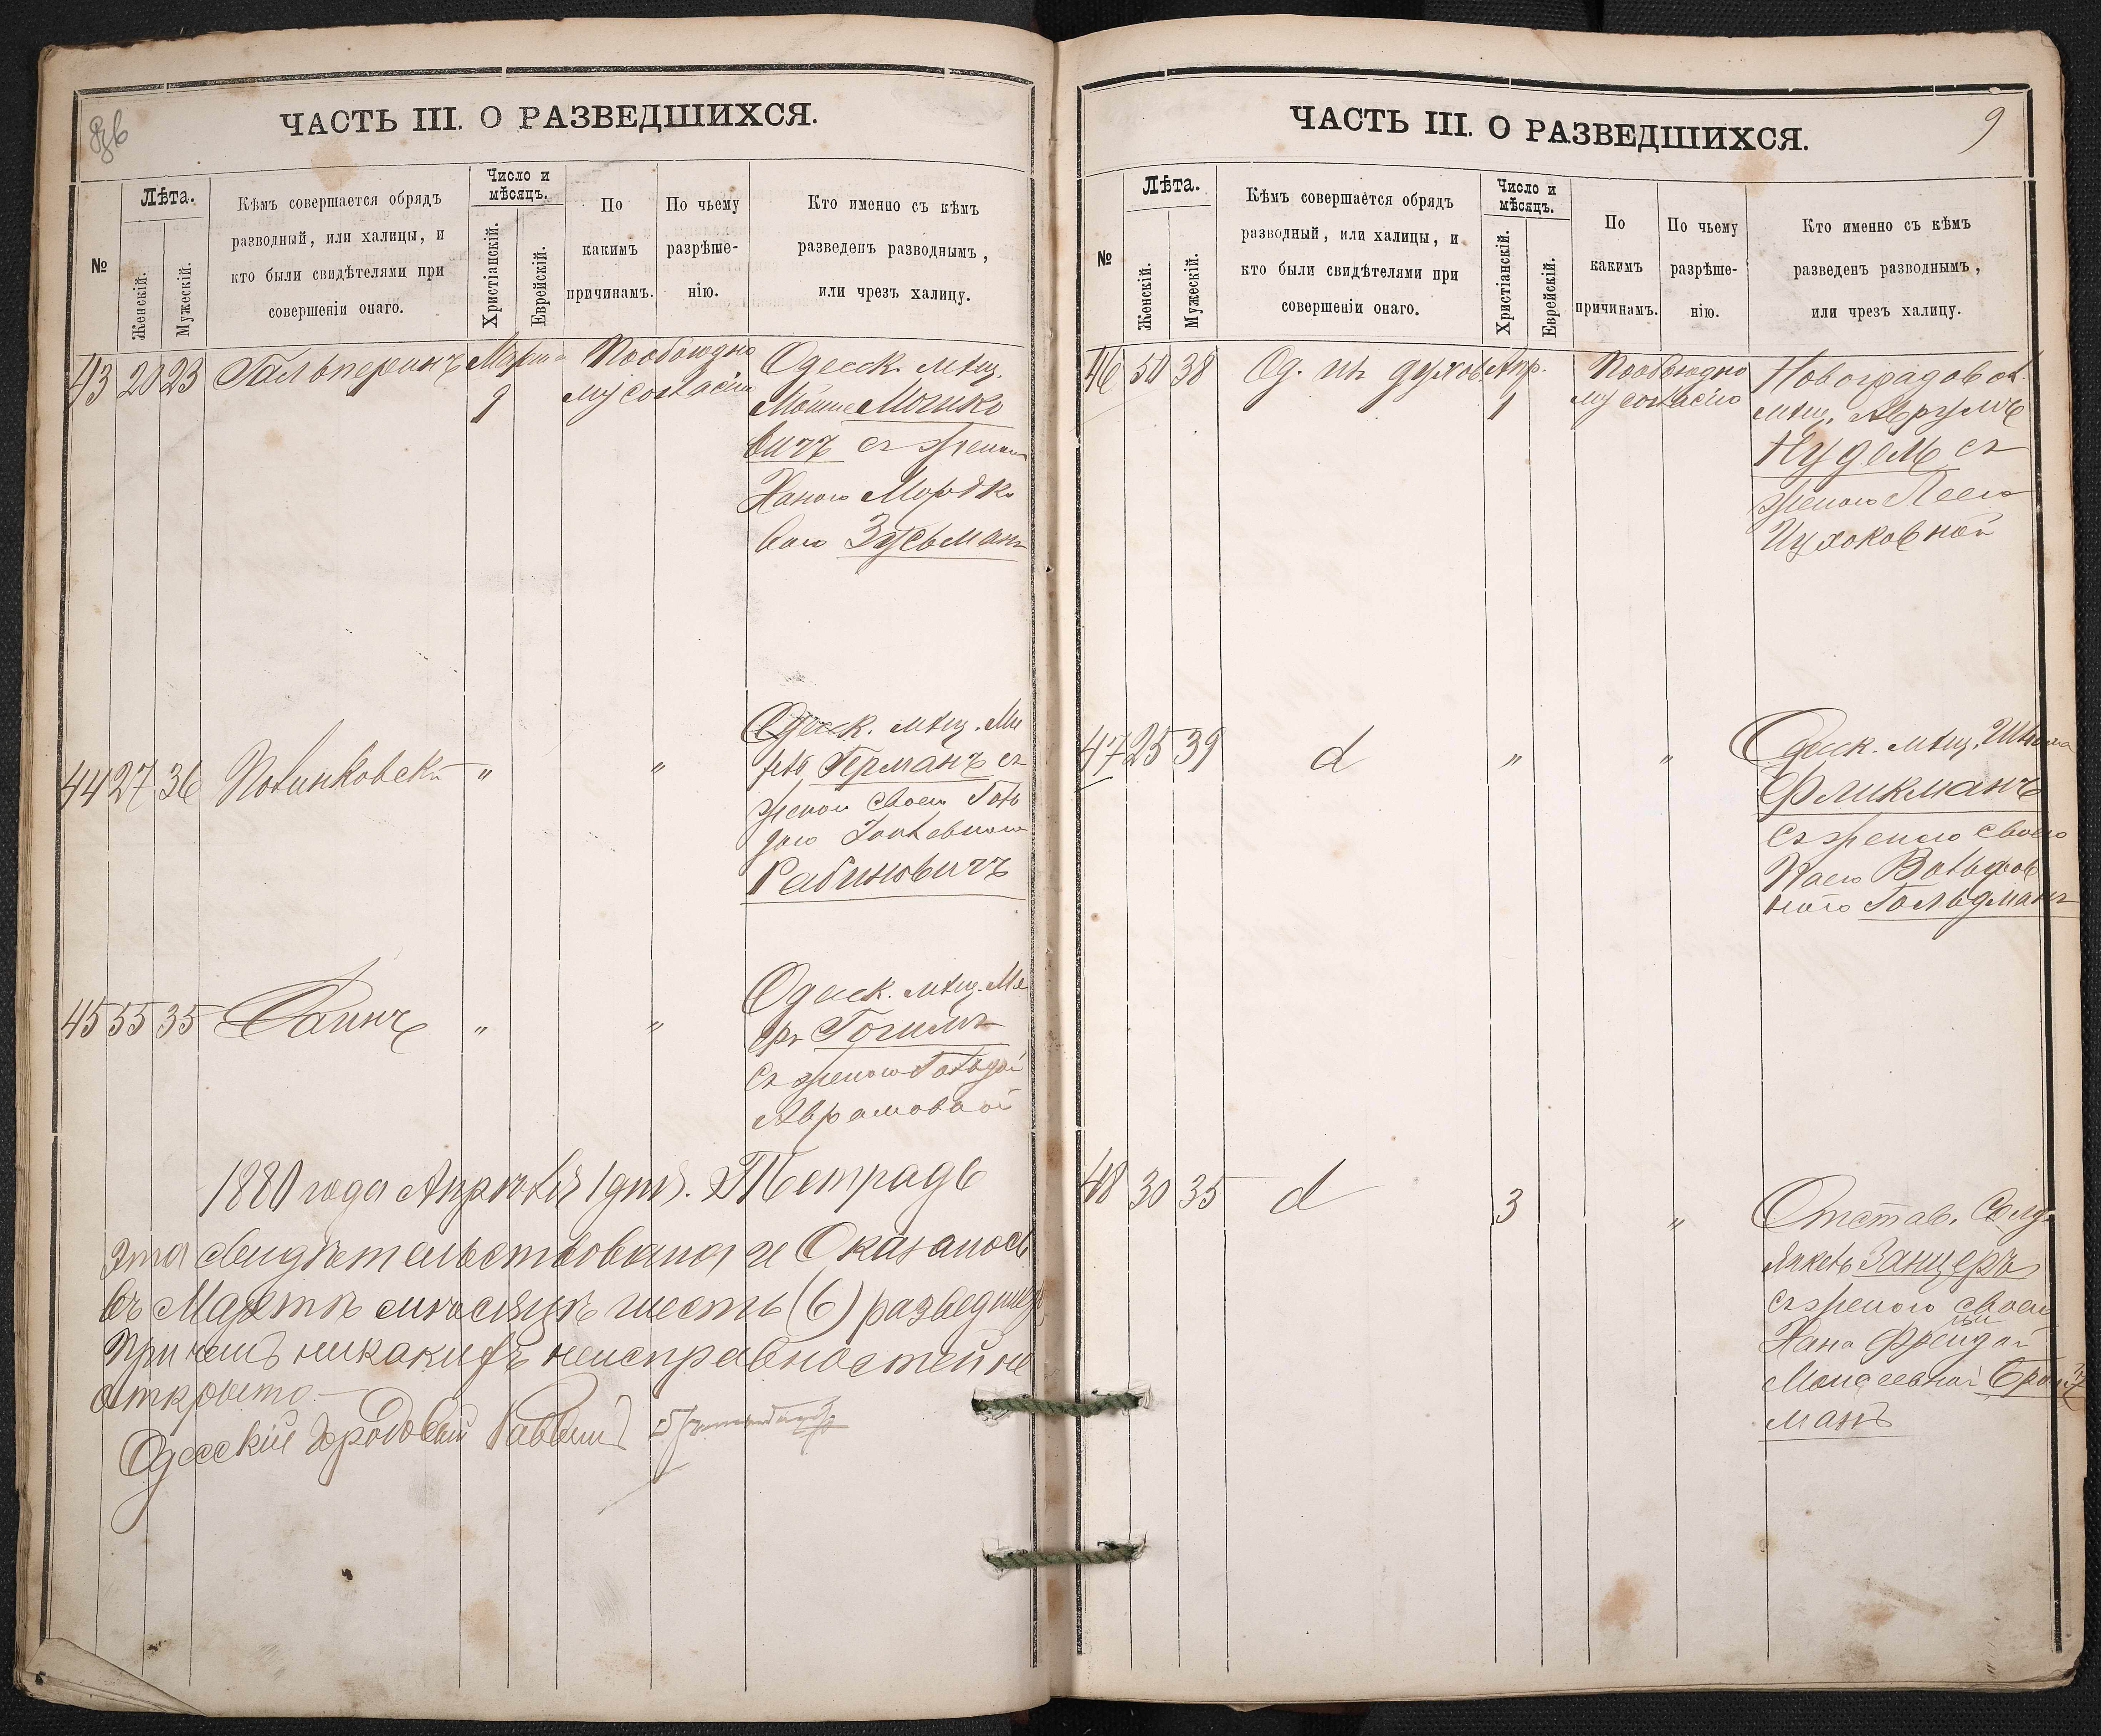 ЧАСТЬ III. О РАЗВЕДШИХСЯ.
№
Лѣта.
Женскій.
Мужескій.
Кѣмъ совершается обрядъ
разводный, или халицы, и
кто были свидѣтелями при
совершеніи онаго.
Число и
мѣсяцъ.
Христіанскій.
Еврейскій.
По
какимъ
причинамъ.
По чьему
разрѣше-
нію.
Кто именно съ кѣмъ
разведенъ разводнымъ,
или чрезъ халицу.
43 20 23 Гальперинъ Марта 9 По обоюдно
му согласію
Одесск. мѣщ.
Мошко
вичъ съ женою
Ханою Мордко
вою Зусьманъ
44 27 36 " "
Одесск. мѣщ. Ме
Германъ съ
женою своею Голь
дою
Рабиновичъ
45 55 35 " "
Одесск. мѣщ. Ме
еръ
съ женою Гольдой
Аврамовной
1880 года Апрѣля 1 дня. Тетрадь
эта свидѣтельствована и Оказалось
въ Мартѣ мѣсяцѣ шесть (6) разведших
при чемъ никакихъ неисправностей не
открыто.
Одесскій Городовой Раввинъ
9
ЧАСТЬ III. О РАЗВЕДШИХСЯ.
№
Лѣта.
Женскій.
Мужескій.
Кѣмъ совершается обрядъ
разводный, или халицы, и
кто были свидѣтелями при
совершеніи онаго.
Число и
мѣсяцъ.
Христіанскій.
Еврейскій.
По
какимъ
причинамъ.
По чьему
разрѣше-
нію.
Кто именно съ кѣмъ
разведенъ разводнымъ,
или чрезъ халицу.
46 50 38 Од. духов. Апр. 1 По обоюдно
му согласію
Новоградовол.
мѣщ. Аврумъ
Нудель съ
женою Леею
Ицхоковной
47 25 39 d " "
Одесск. мѣщ. Шлема
Фликманъ
съ женою своею
Вольфов
ною Гольдманъ
48 30 35 d 3 "
Отстав. Солд.
Янкель Занцеръ
съ женою своею
Хана Фрейдой
Моисеевной
манъ